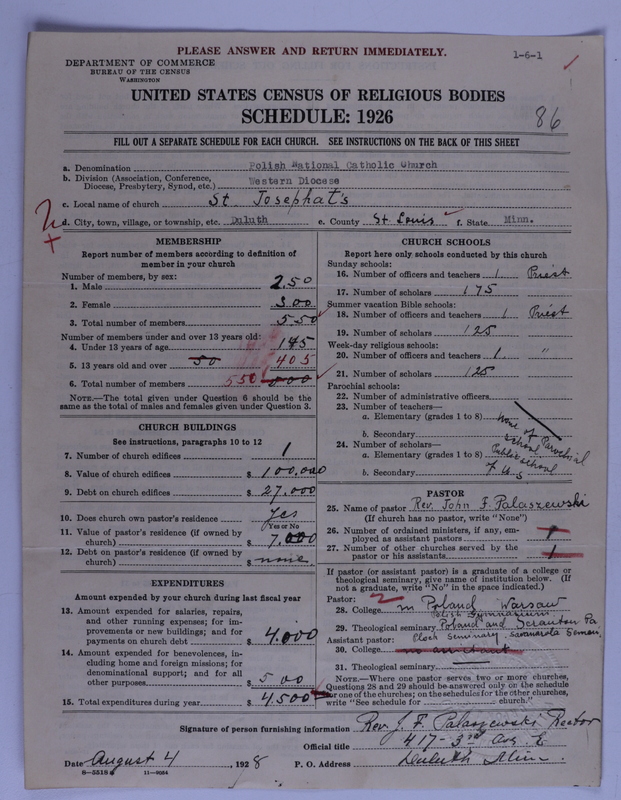 PLEASE ANSWER AND RETURN IMMEDIATELY.
1-6-1
DEPARTMENT OF COMMERCE
BUREAU OF THE CENSUS
WASHINGTON
UNITED STATES CENSUS OF RELIGIOUS BODIES
SCHEDULE: 1926
86
FILL OUT A SEPARATE SCHEDULE FOR EACH CHURCH. SEE INSTRUCTIONS ON THE BACK OF THIS SHEET
a. Denomination Polish National Catholic Church
b. Division (Association, Conference, Diocese, Presbytery, Synod, etc.) Western Diocese
c. Local name of church St. Josephat's
d. City, town, village, or township, etc. Duluth e. County St. Louis f. State Minn.
MEMBERSHIP
Report number of members according to definition of
member in your church
Number of members, by sex:
1. Male 250
2. Female 300
3. Total number of members 550
Number of members under and over 13 years old:
4. Under 13 years of age 145
5. 13 years old and over 50 405
6. Total number of members 550
NOTE.—The total given under Question 6 should be
same as the total of males and females given under Question 3.
CHURCH BUILDINGS
See instructions, paragraphs 10 to 12
7. Number of church edifices 1
8. Value of church edifices $ 100,000
9. Debt on church edifices $ 27.000
10. Does church own pastor's residence yes
Yes or No
11. Value of pastor's residence (if owned by
church) $ 7.000
12. Debt on pastor's residence (if owned by
church) $ none.
EXPENDITURES
Amount expended by your church during last fiscal year
13. Amount expended for salaries, repairs,
and other running expenses; for im-
provements or new buildings; and for
payments on church debt $ 4.000
14. Amount expended for benevolences, in-
cluding home and foreign missions; for
denominational support; and for all
other purposes $ 500
15. Total expenditures during year $ 4.500
CHURCH SCHOOLS
Report here only schools conducted by this church
Sunday schools:
16. Number of officers and teachers 1 Priest
17. Number of scholars 175
Summer vacation Bible schools:
18. Number of officers and teachers 1 Priest
19. Number of scholars 125
Week-day religious schools:
20. Number of officers and teachers 1 "
21. Number of scholars 125
Parochial schools:
22. Number of administrative officers
23. Number of teachers—
a. Elementary (grades 1 to 8) none of Parochial
b. Secondary School
24. Number of scholars—
a. Elementary (grades 1 to 8) Public school
b. Secondary of U.S
PASTOR
25. Name of pastor Rev. John F. Palaszewski
(If church has no pastor, write "None")
26. Number of ordained ministers, if any, em-
ployed as assistant pastors
27. Number of other churches served by the
pastor or his assistants 1
If pastor (or assistant pastor) is a graduate of college or
theological seminary, give name of institution below. (If
not a graduate, write "No" in the space indicated.)
Pastor:
28. College in Poland Warsaw
Gymnasium
29. Theological seminary Poland and Scranton Pa
Assistant pastor: Seminary Savanarola
30. College no assistant
31. Theological seminary
NOTE.—Where one pastor serves two or more churches,
Questions 28 and 29 should be answered only on the schedule
for one of the churches; on the schedules for the other churches,
write "See schedule for church."
Signature of person furnishing information Rev. J. F. Palaszewski Rector
Official title 417-3rd Ave. E
Date August 4, 1928 P. O. Address Duluth Minn.
8—5518 11—9054